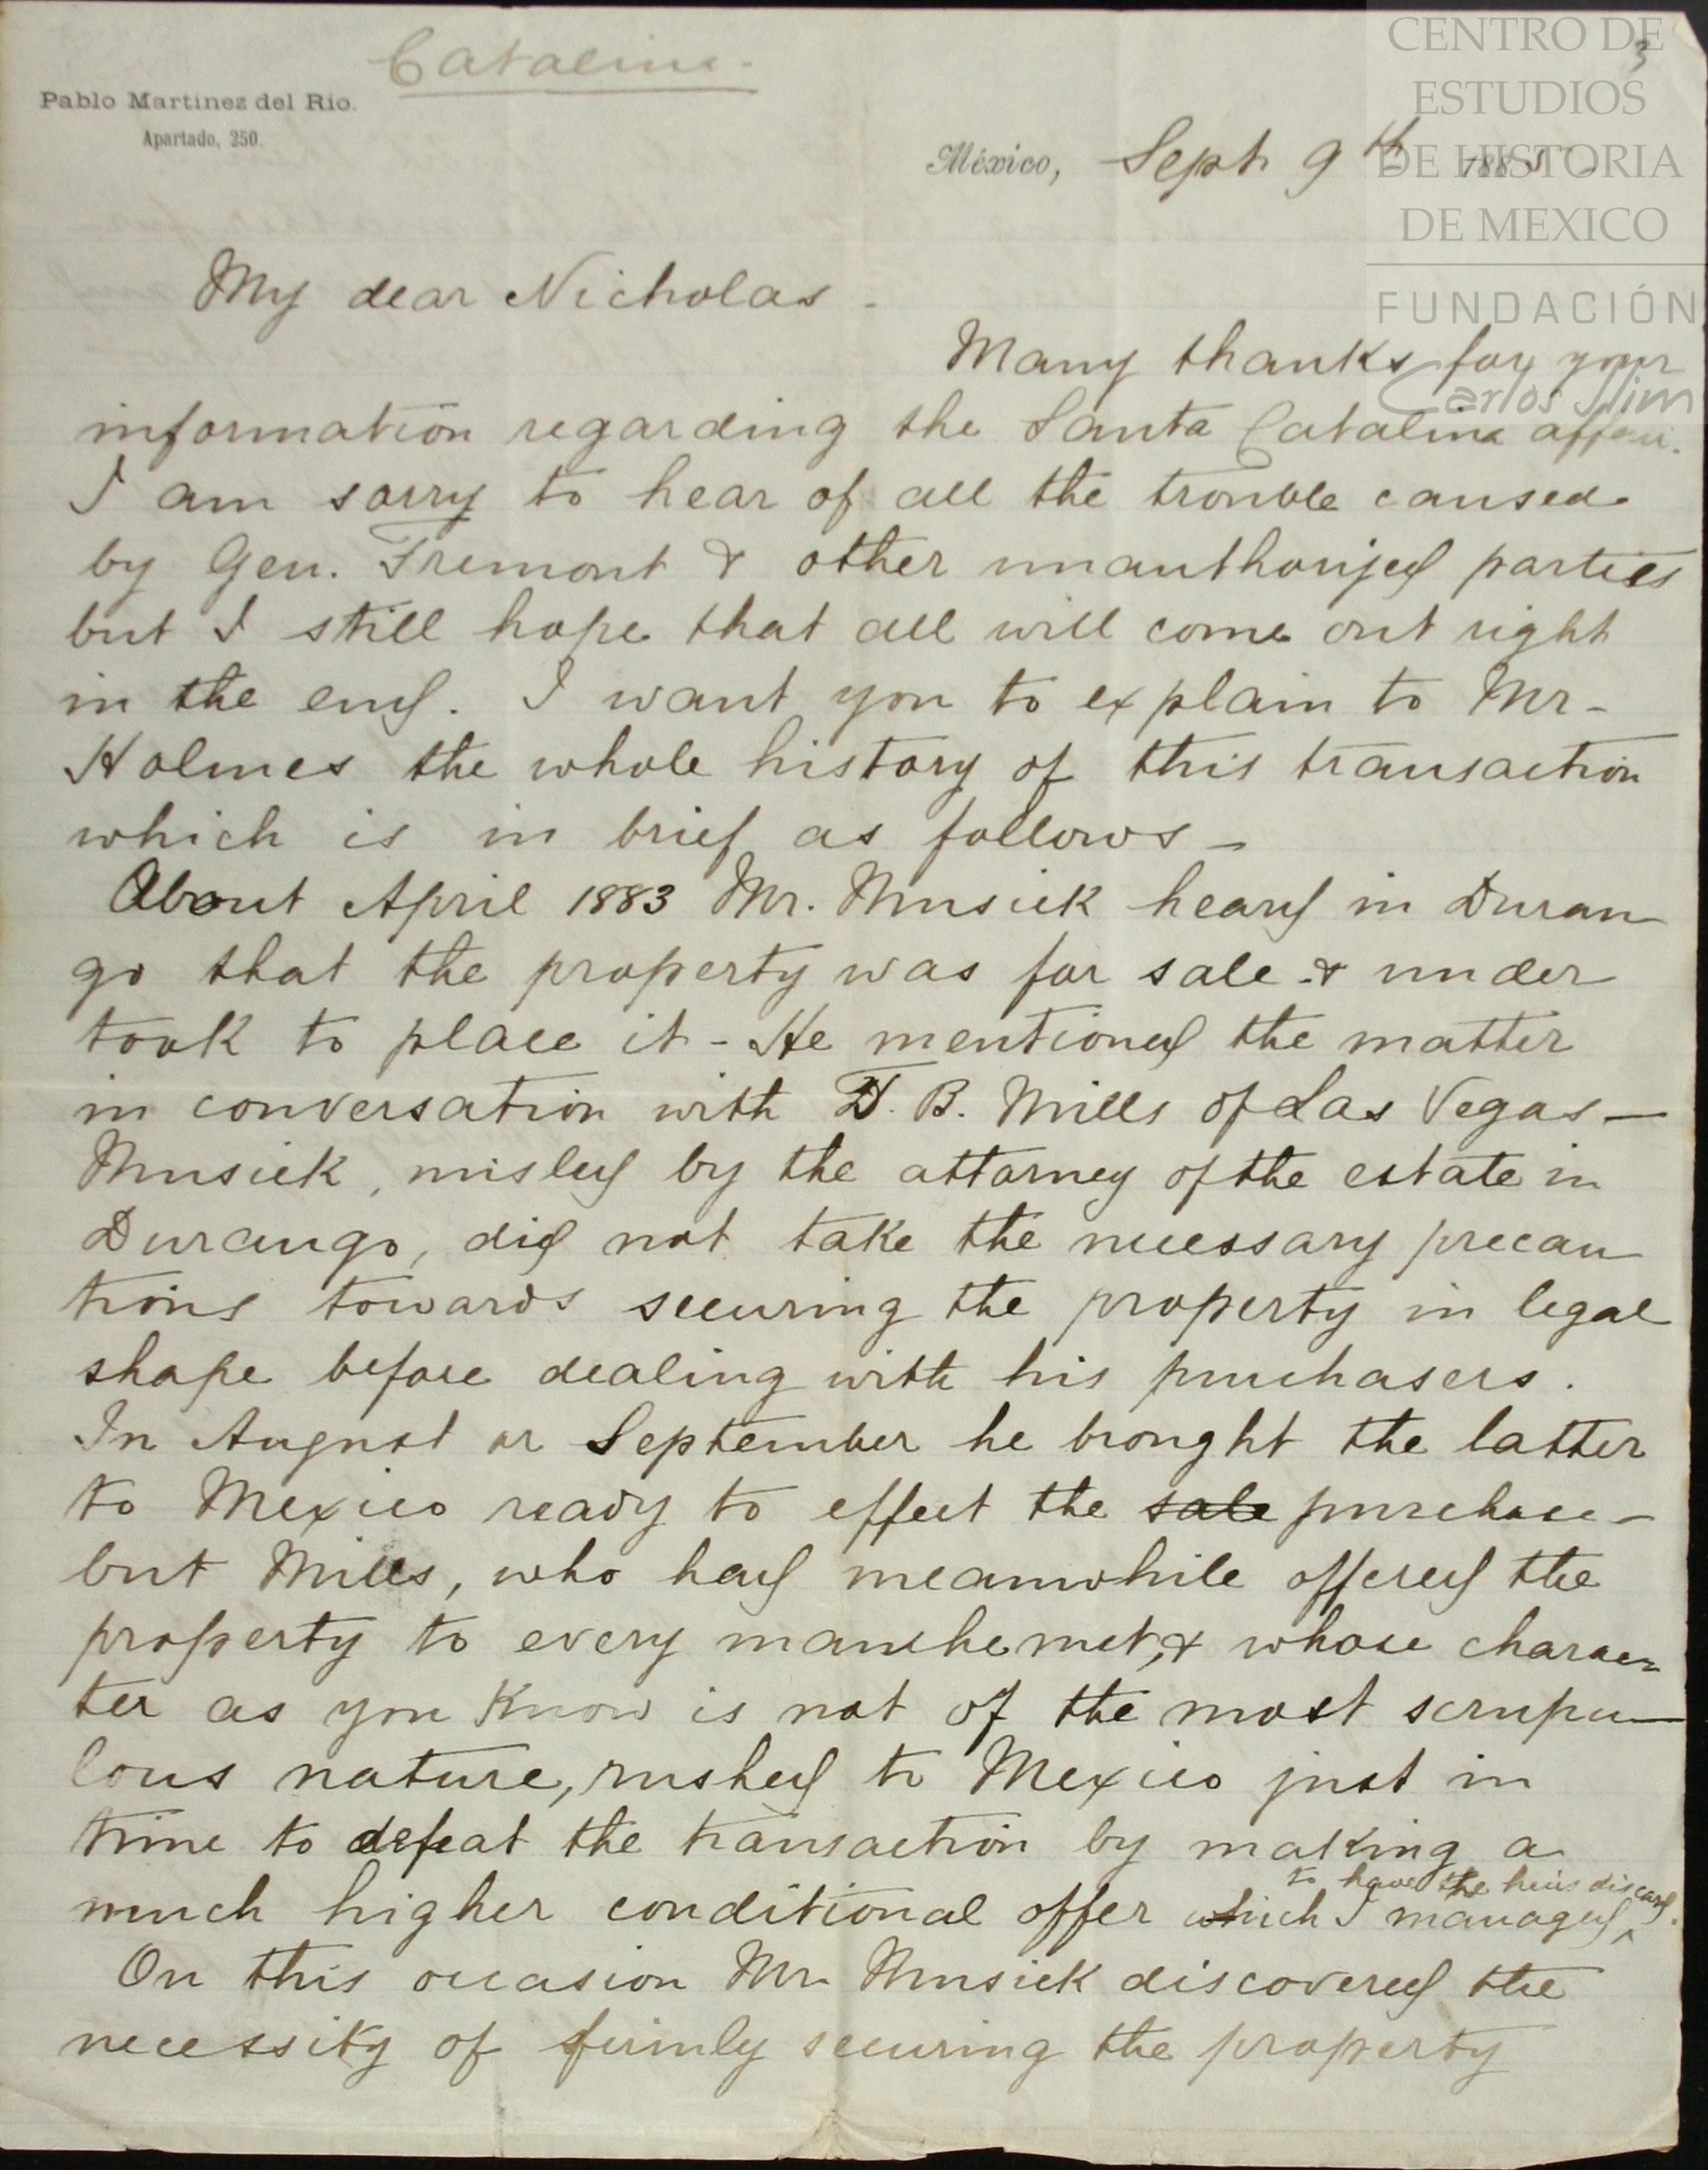 Catalina.
3
Pablo Martinez del Rio.
Apartado, 250.
México, Sept 9th 188
CENTRO DE
ESTUDIOS
DE HISTORIA
DE MEXICO
FUNDACIÓN
Carlos Slim
My dear Nicholas -
Many thanks for your
information regarding the Santa Catalina affair.
I am sorry to hear of all the trouble caused
by Gen. Fremont & other unauthorized parties
but I still hope that all will come out right
in the end. I want you to explain to Mr-
Holmes the whole history of this transaction
which is in brief as follows -
About April 1883 Mr. Musick heard in Duran
go that the property was for sale & under
took to place it - He mentioned the matter
in conversation with T. B. Mills of Las Vegas —
Musick, misled by the attorney of the estate in
Durango, did not take the necessary precau
tions towards securing the property in legal
shape before dealing with his purchasers.
In August or September he brought the latter
to Mexico ready to effect the sale purchase -
but Mills, who had meanwhile offered the
property to every man he met, & whose charac
ter as you know is not of the most scrupu
lous nature, rushed to Mexico just in
time to defeat the transaction by making a
much higher conditional offer which I managed to have the heirs discard.
On this occasion Mr Musick discovered the
necessity of firmly securing the property